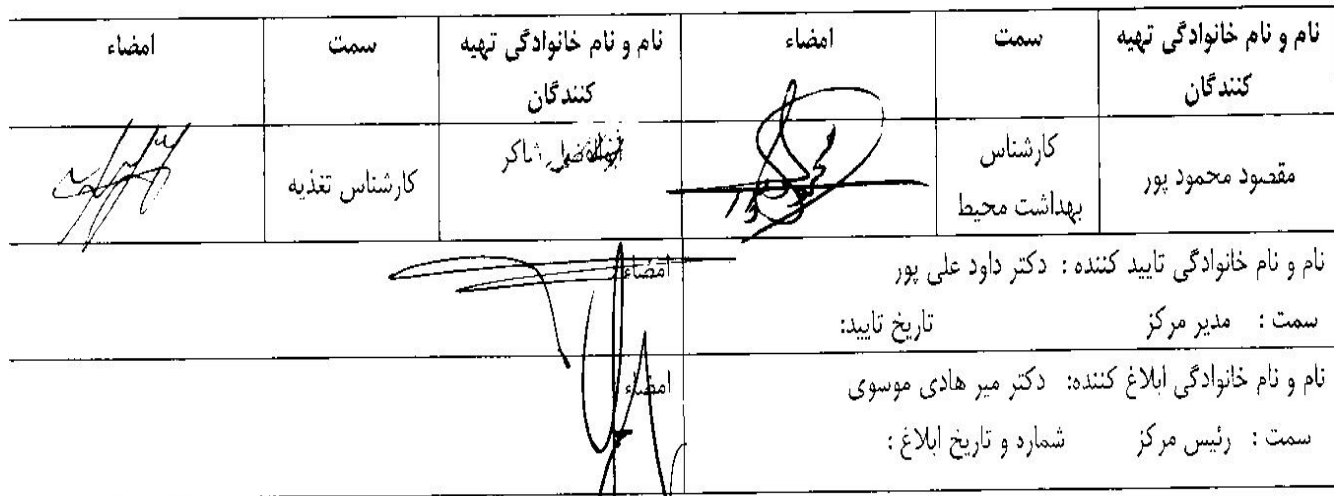 نام و نام خانوادگی تهیه کنندگان
سمت
امضاء
نام و نام خانوادگی تهیه کنندگان
سمت
امضاء
مقصود محمود پور
کارشناس بهداشت محیط
شاکر
کارشناس تغذیه
نام و نام خانوادگی تایید کننده : دکتر داود علی پور
امضاء
سمت : مدیر مرکز تاریخ تایید:
نام و نام خانوادگی ابلاغ کننده: دکتر میر هادی موسوی
امضاء
سمت : رئیس مرکز شماره و تاریخ ابلاغ :